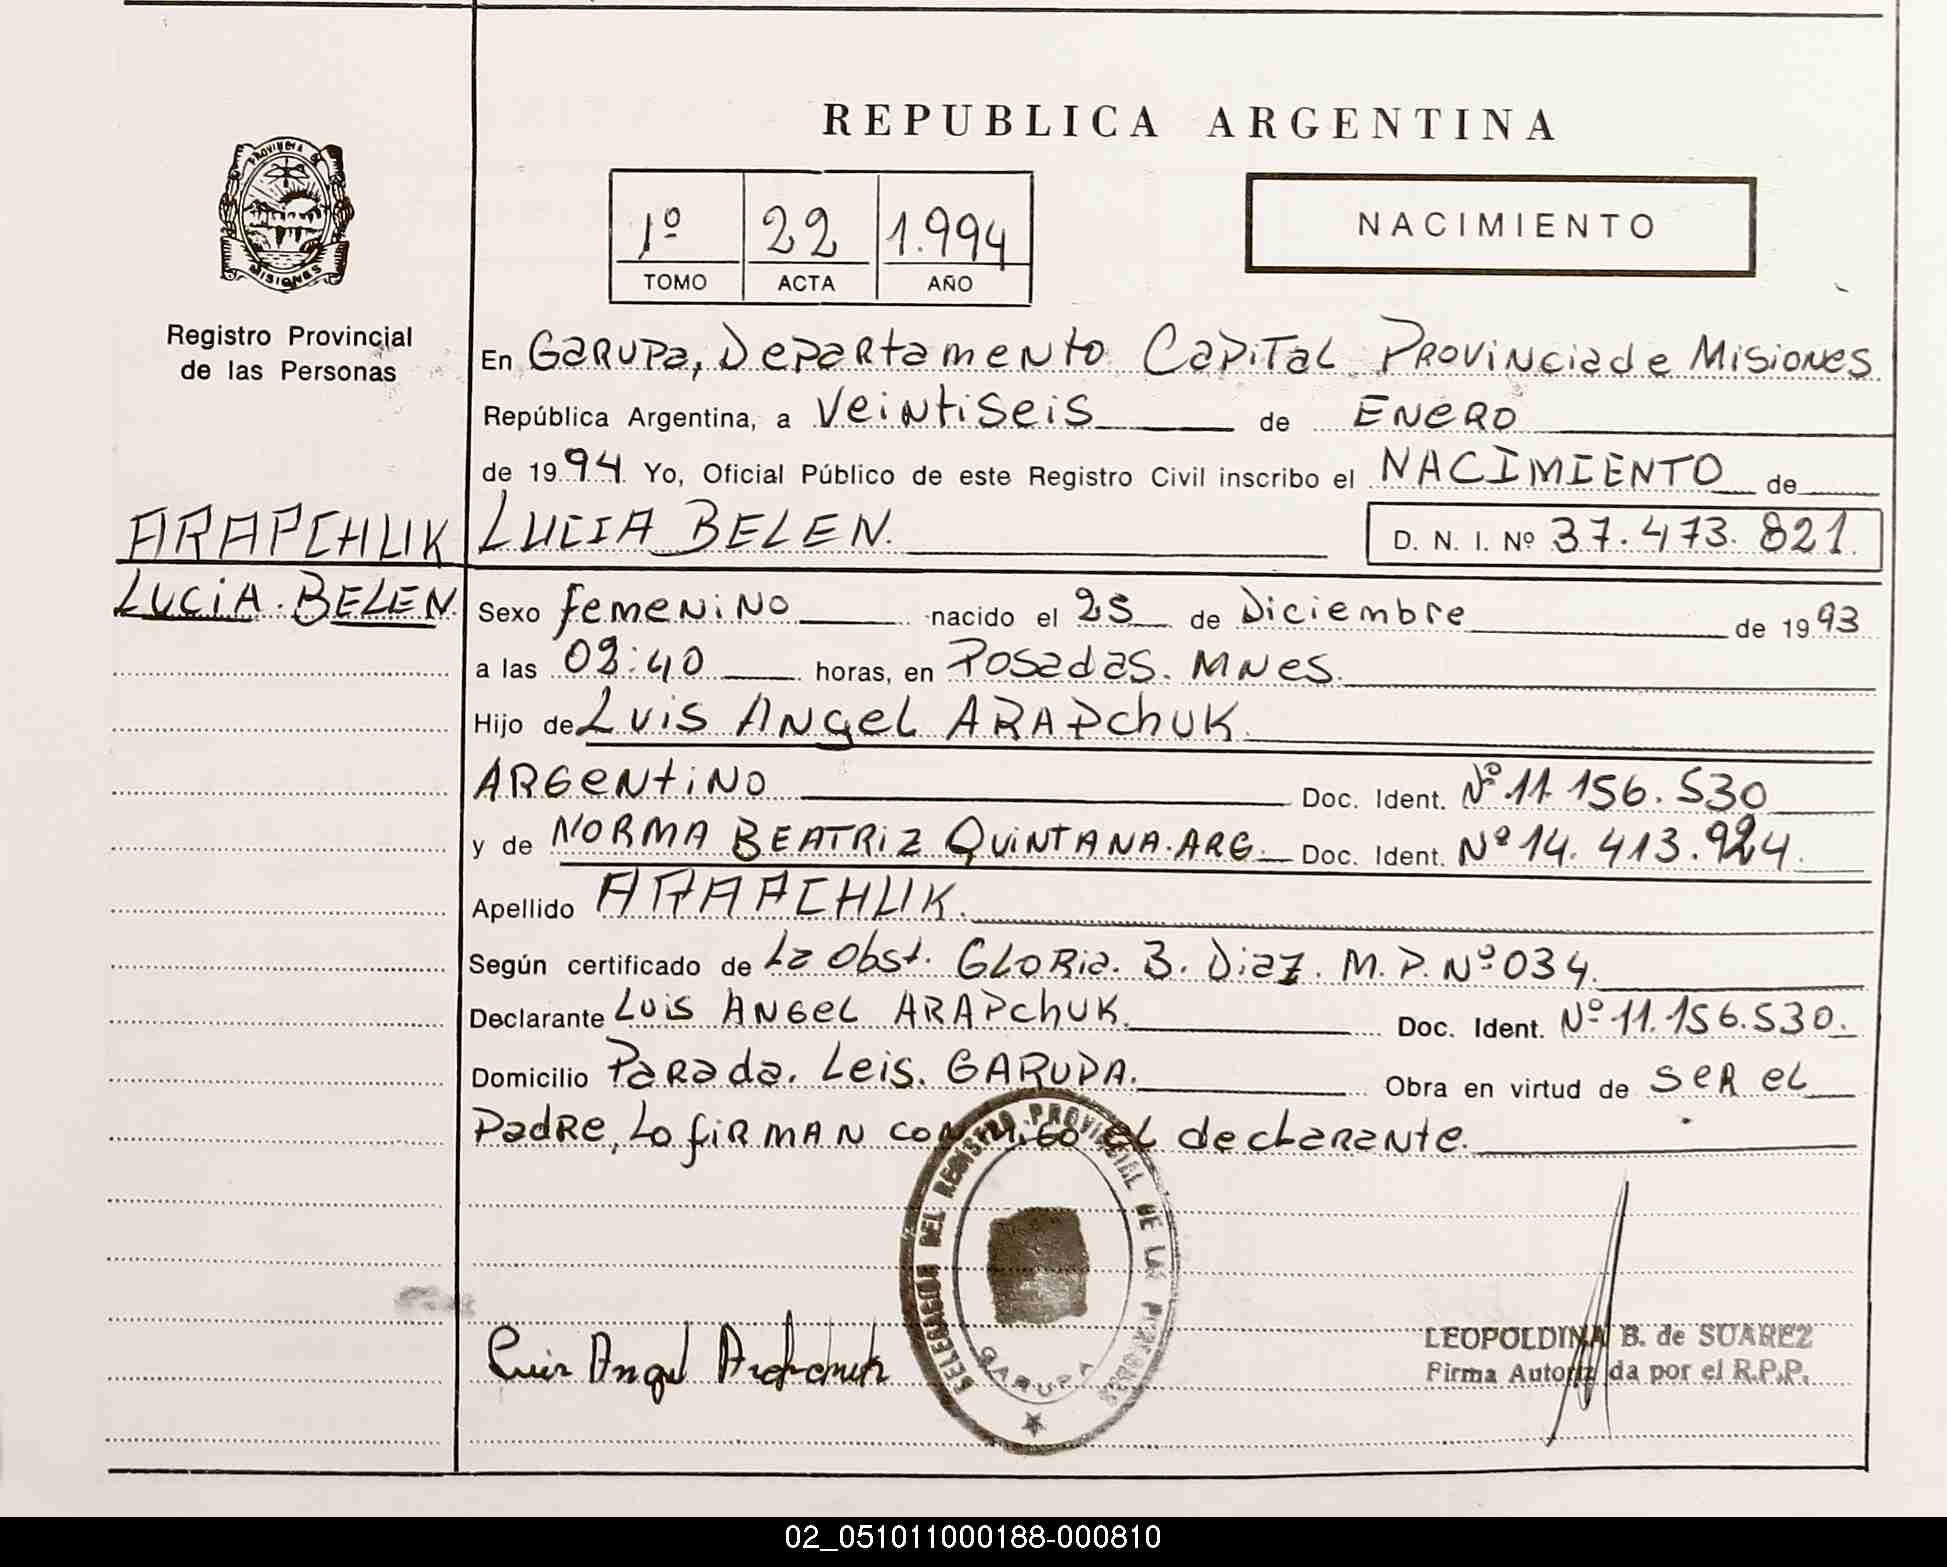 REPUBLICA ARGENTINA
PROVINCIA DE
MISIONES
Registro Provincial
de las Personas
1º 22 1.994
TOMO ACTA AÑO
NACIMIENTO
En GARUPA, Departamento Capital Provincia de Misiones
República Argentina, a Veintiseis de ENERO
de 1994 Yo, Oficial Público de este Registro Civil inscribo el NACIMIENTO de
ARAPCHUK LUCIA BELEN. D. N. I. Nº 37.473.821.
LUCIA BELEN.
Sexo femenino nacido el 25 de Diciembre de 1993
a las 02:40 horas, en Posadas. MNes.
Hijo de Luis Angel ARAPchUK.
ARGentiNO Doc. Ident. Nº 11.156.530
y de NORMA BEATRIZ QUINTANA. ARG. Doc. Ident. Nº 14.413.924.
Apellido ARAPCHUK.
Según certificado de La Obst. GLORia. B. Diaz. M. P. Nº 034.
Declarante Luis ANGeL ARAPchUK. Doc. Ident. Nº 11.156.530.
Domicilio Parada. Leis. GARUPA. Obra en virtud de ser el
Padre, Lo firman conmigo el declarante.
DELEGACION DEL REGISTRO PROVINCIAL DE LAS PERSONAS
GARUPA
Luis Angel Arapchuk
LEOPOLDINA B. de SUAREZ
Firma Autorizada por el R.P.P.
02_051011000188-000810